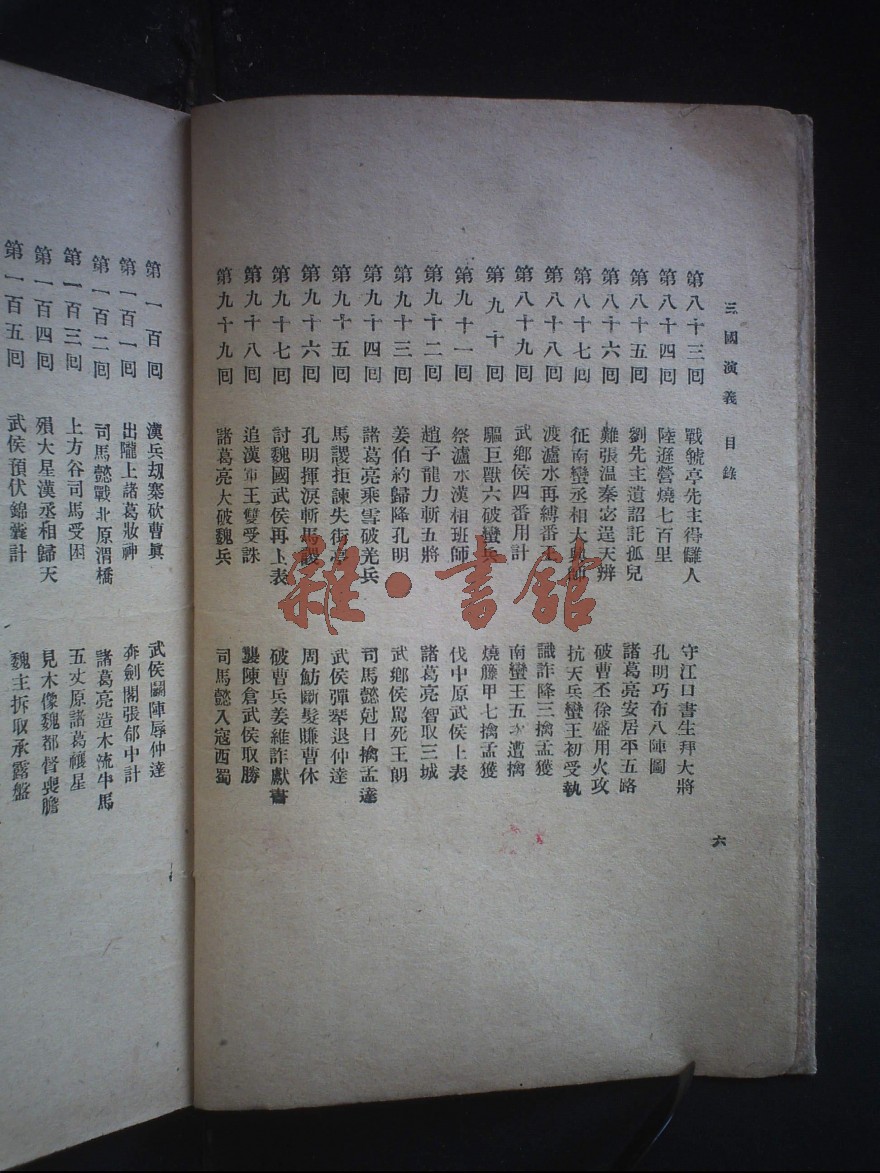 三國演義 目錄
第八十三回 戰虢亭先主得讎人 守江口書生拜大將
第八十四回 陸遜營燒七百里 孔明巧布八陣圖
第八十五回 劉先主遺詔託孤兒 諸葛亮安居平五路
第八十六回 難張温秦宓逞天辨 破曹丕徐盛用火攻
第八十七回 征南蠻丞相大興師 抗天兵蠻王初受執
第八十八回 渡瀘水再縛番王 識詐降三擒孟獲
第八十九回 武鄉侯四番用計 南蠻王五次遭擒
第九十回 驅巨獸六破蠻兵 燒藤甲七擒孟獲
第九十一回 祭瀘水漢相班師 伐中原武侯上表
第九十二回 趙子龍力斬五將 諸葛亮智取三城
第九十三回 姜伯約歸降孔明 武鄉侯罵死王朗
第九十四回 諸葛亮乘雪破羌兵 司馬懿尅日擒孟達
第九十五回 馬謖拒諫失街亭 武侯彈琴退仲達
第九十六回 孔明揮淚斬馬謖 周魴斷髮賺曹休
第九十七回 討魏國武侯再上表 破曹兵姜維詐獻書
第九十八回 追漢軍王雙受誅 襲陳倉武侯取勝
第九十九回 諸葛亮大破魏兵 司馬懿入寇西蜀
六
第一百回 漢兵刧寨砍曹眞 武侯鬭陣辱仲達
第一百一回 出隴上諸葛妝神 奔劍閣張郃中計
第一百二回 司馬懿戰北原渭橋 諸葛亮造木流牛馬
第一百三回 上方谷司馬受困 五丈原諸葛禳星
第一百四回 殞大星漢丞相歸天 見木像魏都督喪膽
第一百五回 武侯預伏錦囊計 魏主拆取承露盤
雜·書館